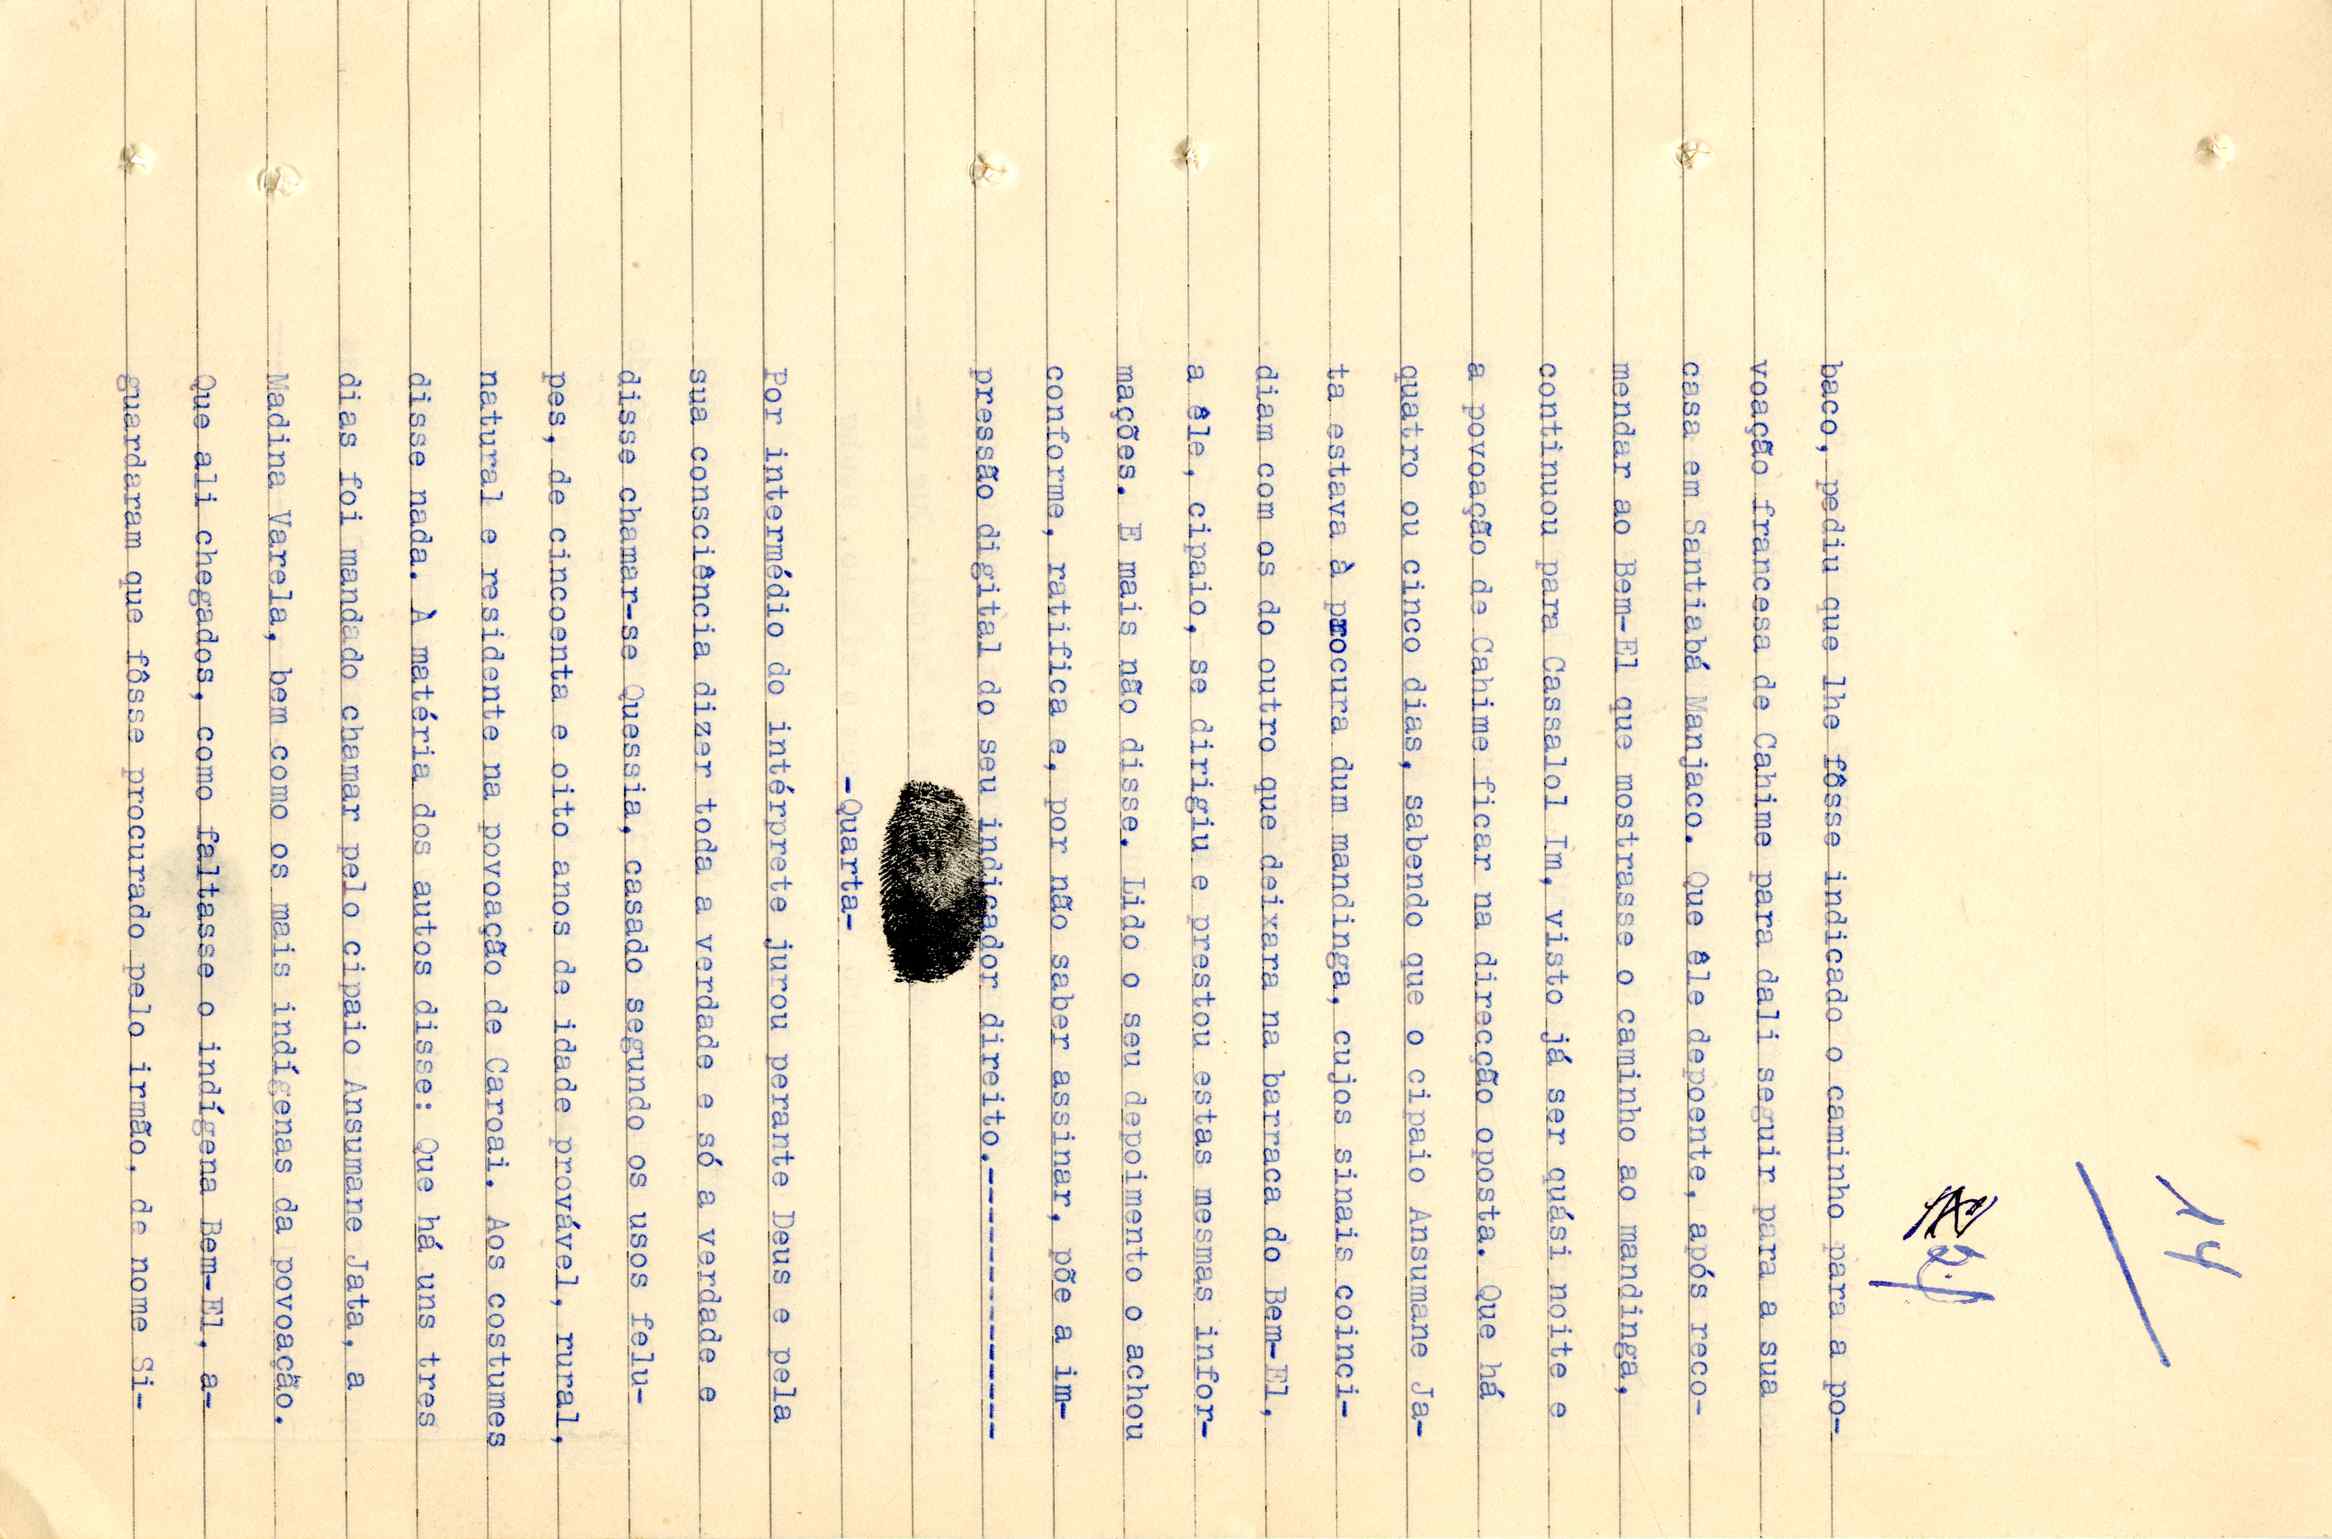 14
baco, pediu que lhe fôsse indicado o caminho para a po-
voação francesa de Cahime para dali seguir para a sua
casa em Santiabá Manjaco. Que êle depoente, após reco-
mendar ao Bem-El que mostrasse o caminho ao mandinga,
continuou para Cassalol Im, visto já ser quási noite e
a povoação de Cahime ficar na direcção oposta. Que há
quatro ou cinco dias, sabendo que o cipaio Ansumane Ja-
ta estava à procura dum mandinga, cujos sinais coinci-
diam com os do outro que deixara na barraca do Bem-El,
a êle, cipaio, se dirigiu e prestou estas mesmas infor-
mações. E mais não disse. Lido o seu depoimento o achou
conforme, ratifica e, por não saber assinar, põe a im-
pressão digital do seu indicador direito.--------------
-Quarta-
Por intermédio do intérprete jurou perante Deus e pela
sua consciência dizer toda a verdade e só a verdade e
disse chamar-se Quessia, casado segundo os usos felu-
pes, de cincoenta e oito anos de idade provável, rural,
natural e residente na povoação de Caroai. Aos costumes
disse nada. À matéria dos autos disse: Que há uns tres
dias foi mandado chamar pelo cipaio Ansumane Jata, a
Madina Varela, bem como os mais indígenas da povoação.
Que ali chegados, como faltasse o indígena Bem-El, a-
guardaram que fôsse procurado pelo irmão, de nome Si-